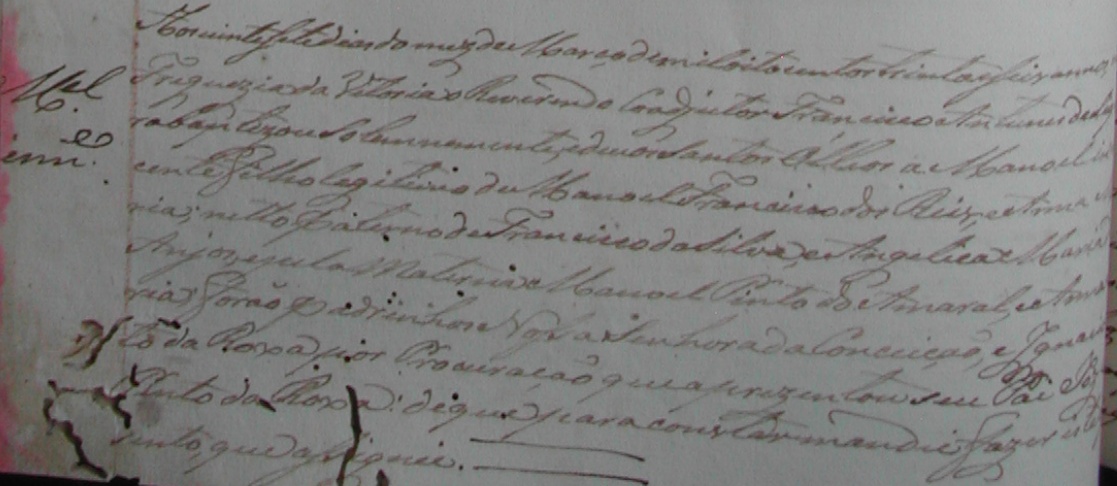 Aos vinte sete dias do mez de Março de mil oito centos trinta e seis annos
Freguezia da Vitoria o Reverendo Coadjutor Francisco Antunes de
Mel
robaptizou solemnemente, e deu os Santos Olhos a Manoel
cente Filho legitimo de Manoel Francisco dos Reis, e Anna
ria; netto Paterno de Francisco da Silva, e Angelica Maria
Anjos, e pela Materna Manoel Pinto do Amaral, e Anna
ria; forão padrinhos Nossa Senhora da Conceição, e Ignacio
to da Roxa por Procuração que aprezentou seu Pai
Pinto da Roxa: de que para constar mandei fazer este
sento, que assignei.